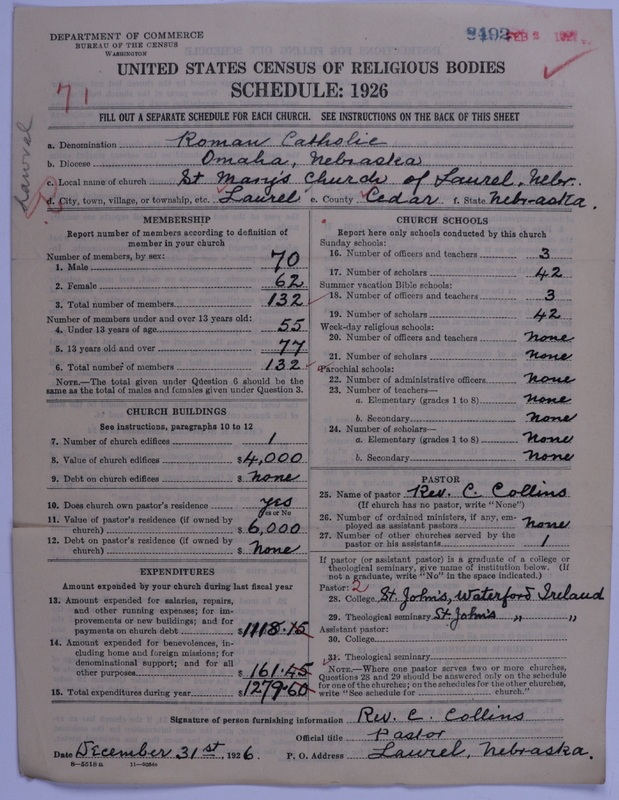 DEPARTMENT OF COMMERCE
BUREAU OF THE CENSUS
WASHINGTON
8492
UNITED STATES CENSUS OF RELIGIOUS BODIES
SCHEDULE: 1926
71
FILL OUT A SEPARATE SCHEDULE FOR EACH CHURCH. SEE INSTRUCTIONS ON THE BACK OF THIS SHEET
Laurel
a. Denomination Roman Catholic
b. Diocese Omaha, Nebraska
c. Local name of church St Mary's Church of Laurel, Nebr.
d. City, town, village, or township, etc. Laurel e. County Cedar f. State Nebraska.
MEMBERSHIP
Report number of members according to definition of
member in your church
Number of members, by sex:
1. Male 70
2. Female 62
3. Total number of members 132
Number of members under and over 13 years old:
4. Under 13 years of age 55
5. 13 years old and over 77
6. Total number of members 132
NOTE.—The total given under Question 6 should be
same as the total of males and females given under Question 3.
CHURCH BUILDINGS
See instructions, paragraphs 10 to 12
7. Number of church edifices 1
8. Value of church edifices $4,000
9. Debt on church edifices $ None
10. Does church own pastor's residence yes
Yes or No
11. Value of pastor's residence (if owned by
church) $ 6,000
12. Debt on pastor's residence (if owned by
church) $ None
EXPENDITURES
Amount expended by your church during last fiscal year
13. Amount expended for salaries, repairs,
and other running expenses; for im-
provements or new buildings; and for
payments on church debt $1118.15
14. Amount expended for benevolences, in-
cluding home and foreign missions; for
denominational support; and for all
other purposes $ 161.45
15. Total expenditures during year $1279.60
CHURCH SCHOOLS
Report here only schools conducted by this church
Sunday schools:
16. Number of officers and teachers 3
17. Number of scholars 42
Summer vacation Bible schools:
18. Number of officers and teachers 3
19. Number of scholars 42
Week-day religious schools:
20. Number of officers and teachers None
21. Number of scholars None
Parochial schools:
22. Number of administrative officers None
23. Number of teachers—
a. Elementary (grades 1 to 8) None
b. Secondary None
24. Number of scholars—
a. Elementary (grades 1 to 8) None
b. Secondary None
PASTOR
25. Name of pastor Rev. C. Collins
(If church has no pastor, write "None")
26. Number of ordained ministers, if any, em-
ployed as assistant pastors None
27. Number of other churches served by the
pastor or his assistants 1
If pastor (or assistant pastor) is a graduate of a college or
theological seminary, give name of institution below. (If
not a graduate, write "No" in the space indicated.)
Pastor: 2
28. College St John's, Waterford Ireland
29. Theological seminary St John's " "
Assistant pastor:
30. College
31. Theological seminary
NOTE.—Where one pastor serves two or more churches,
Questions 28 and 29 should be answered only on the schedule
for one of the churches; on the schedules for the other churches,
write "See schedule for church."
Signature of person furnishing information Rev. C. Collins
Official title Pastor
Date December 31st, 1926. P. O. Address Laurel, Nebraska.
8—5518a